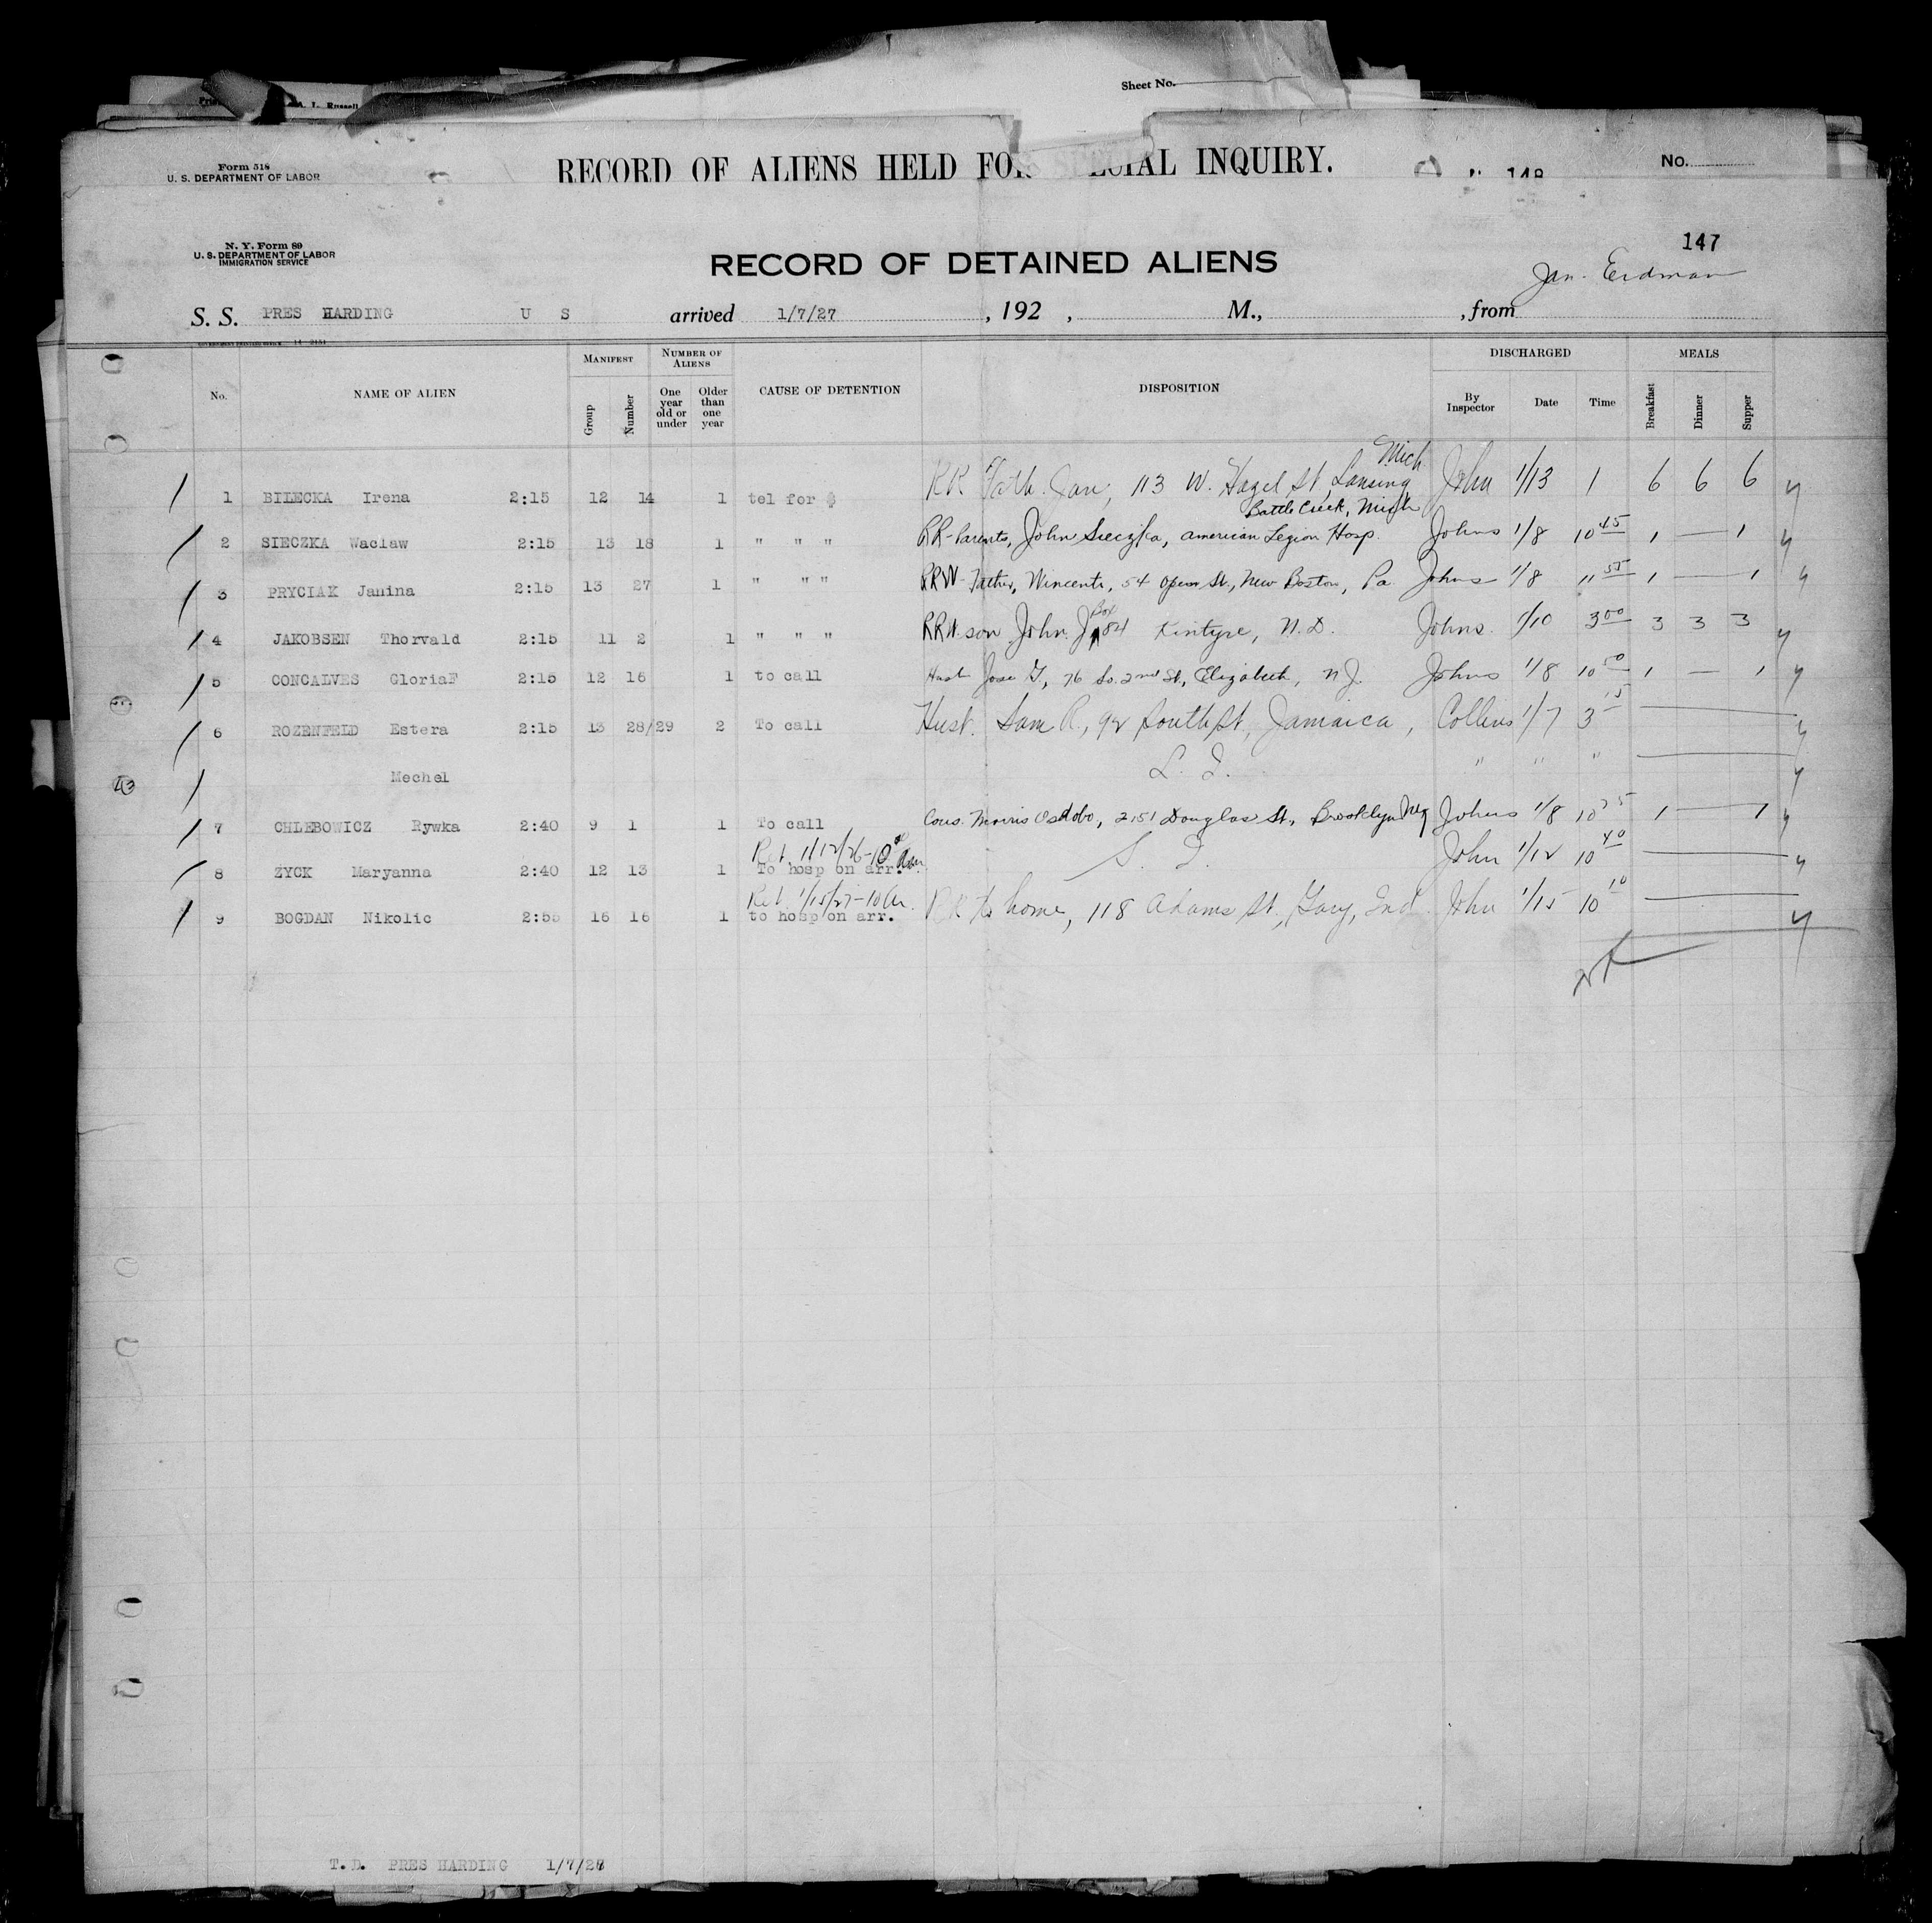 Sheet No.
A. L. Russell
Form 518
U. S. DEPARTMENT OF LABOR
RECORD OF ALIENS HELD FOR SPECIAL INQUIRY.
No.
148
N. Y. Form 89
U. S. DEPARTMENT OF LABOR
IMMIGRATION SERVICE
RECORD OF DETAINED ALIENS
147
Jan. Erdman
S. S. PRES HARDING U S arrived 1/7/27, 192 , M., , from
MANIFEST NUMBER OF ALIENS DISCHARGED MEALS
No. NAME OF ALIEN Group Number One year old or under Older than one year CAUSE OF DETENTION DISPOSITION By Inspector Date Time Breakfast Dinner Supper
1 BILECKA Irena 2:15 12 14 1 tel for $ RR Fath. Jan, 113 W. Hazel St, Lansing, Mich John 1/13 1 6 6 6 y
2 SIECZKA Waclaw 2:15 13 18 1 " " " RR-Parents, John Sieczka, American Legion Hosp. Battle Creek, Mich Johns 1/8 10 45 1 — 1 y
3 PRYCIAK Janina 2:15 13 27 1 " " " RRW-Father, Wincenti, 54 St., New Boston, Pa Johns 1/8 11 55 1 — 1 y
4 JAKOBSEN Thorvald 2:15 11 2 1 " " " RRW. son John J Box 84 Kintyre, N.D. Johns. 1/10 3 00 3 3 3 y
5 CONCALVES GloriaF 2:15 12 16 1 to call Husb Jose G, 76 So. 2nd St, Elizabeth, N J. Johns 1/8 10 50 1 — 1 y
6 ROZENFELD Estera 2:15 13 28/29 2 To call Husb. Sam R, 92 South St, Jamaica, Collins 1/7 3 15 — y
Mechel L. I. " " " — y
7 CHLEBOWICZ Rywka 2:40 9 1 1 To call Cous. Morris 2151 Douglas St, Brooklyn NY Johns 1/8 10 1 — 1 y
Ret. 1/12/26-10 am
8 ZYCK Maryanna 2:40 12 13 1 To hosp on arr. S. I. John 1/12 10 40 — y
Ret. 1/15/27-10 am
9 BOGDAN Nikolic 2:55 16 16 1 to hosp on arr. RR to home, 118 Adams St., Gary, Ind. John 1/15 10 10 — y
43
T.D. PRES HARDING 1/7/27